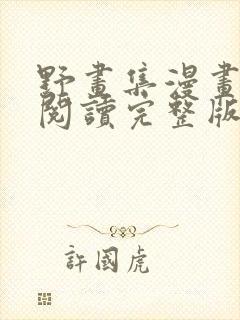 野畫集漫畫
閱讀完整版
許國虎